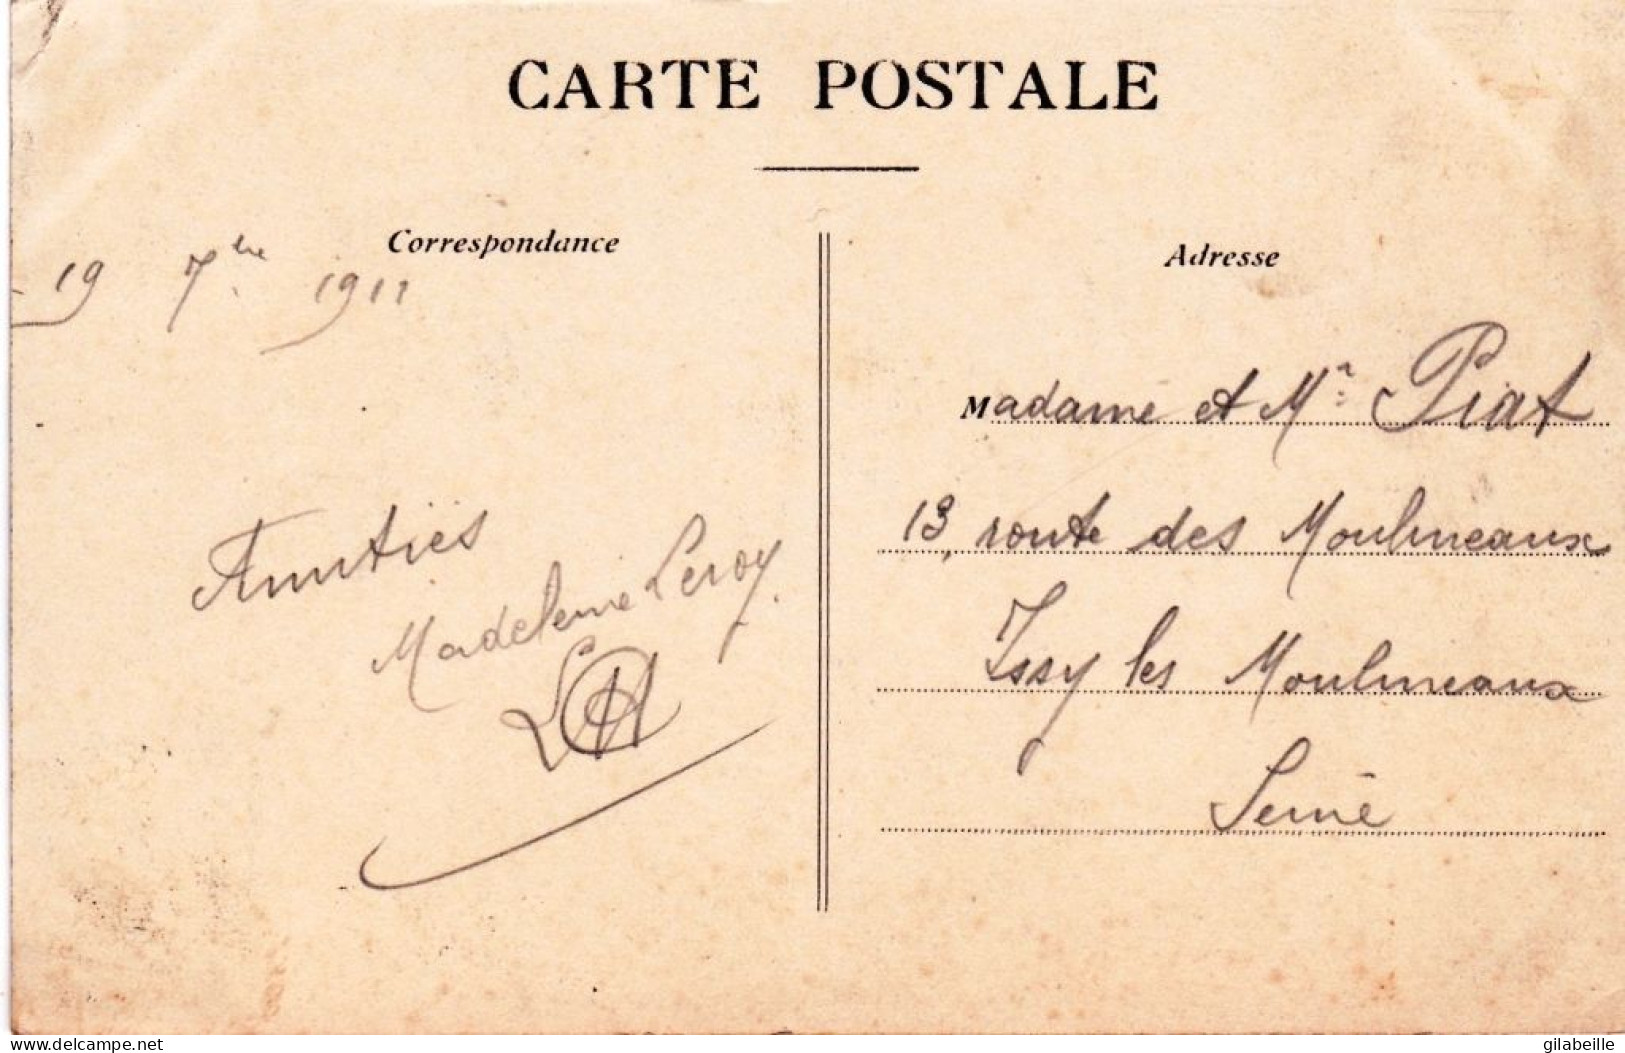 CARTE POSTALE
Correspondance
19 7bre 1911
Amitiés
Madeleine Leroy
Adresse
Madame et Mr Piat
13, route des Moulineaux
Issy les Moulineaux
Seine
delcampe.net
gilabeille